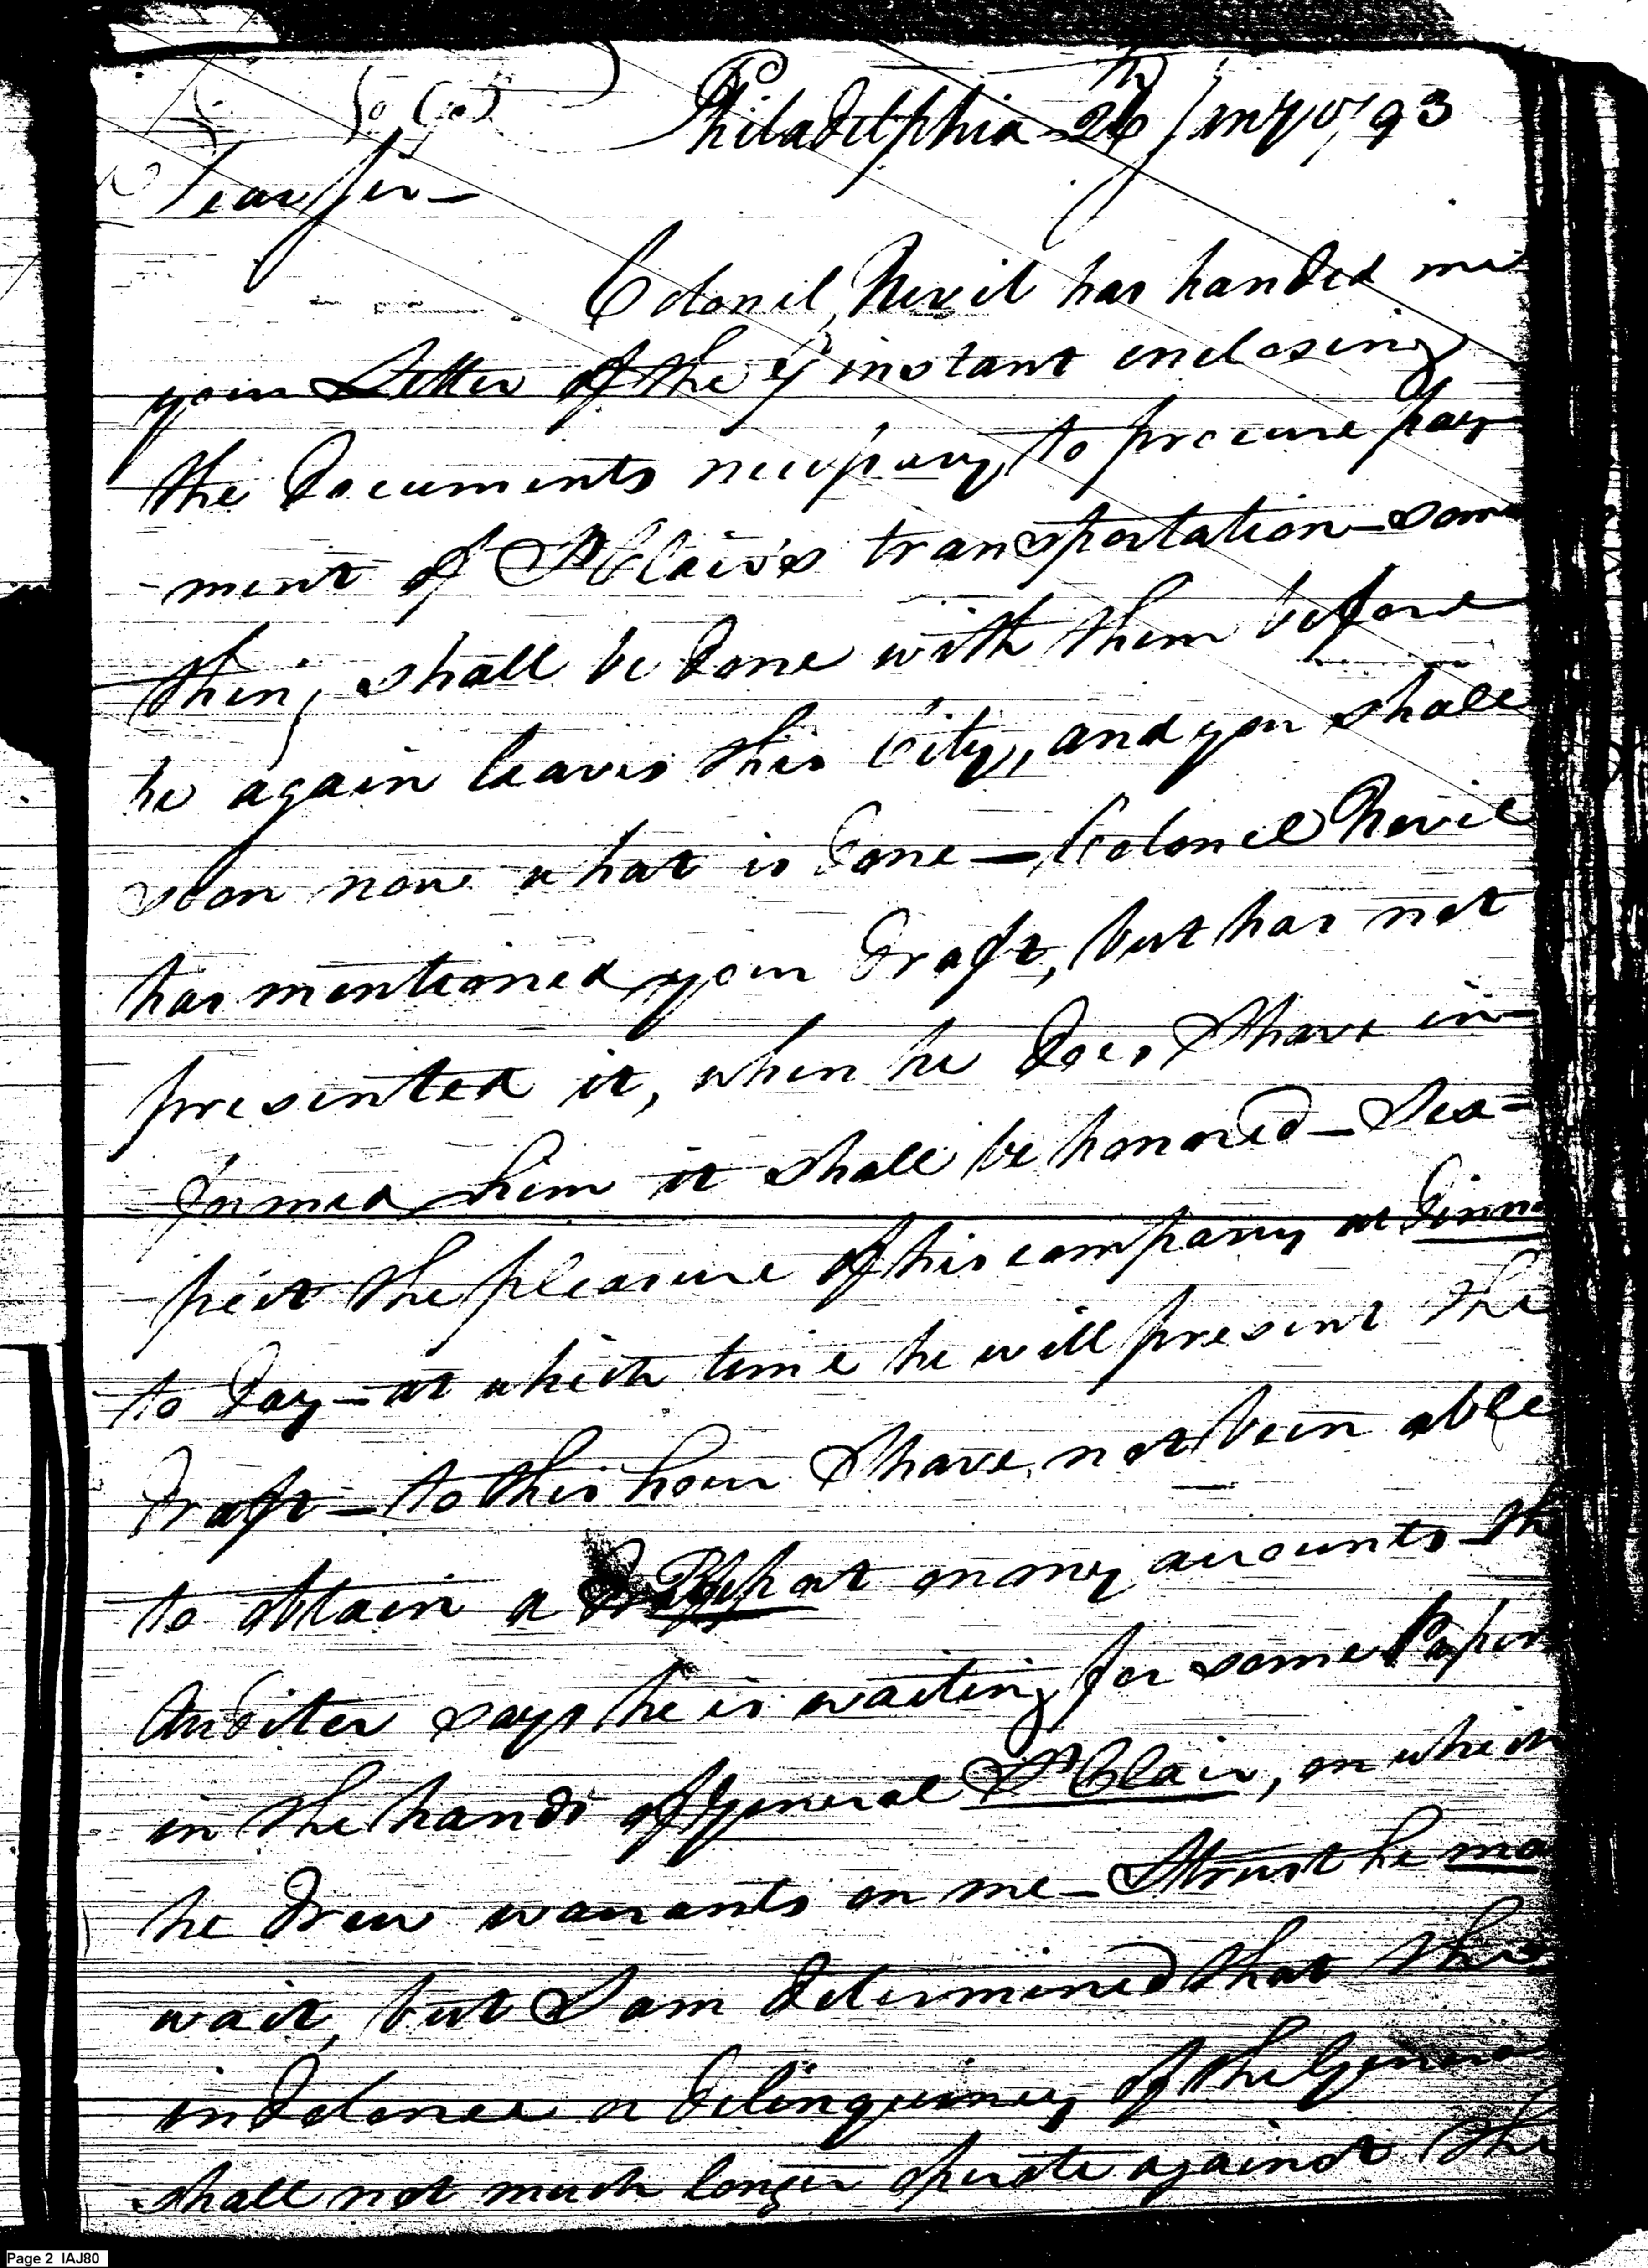 Philadelphia 26th Jany 1793
Dear Sir—
Colonel Nevil has handed me
your Letter of the 9 instant enclosing
the documents necessary to procure pay-
-ment of St Clair's transportation—some
thing shall be done with them before
he again leaves this City, and you shall
soon now what is done—Colonel Nevil
has mentioned your draft, but has not
presented it, when he does I have in-
formed him it shall be honored—I ex-
pect the pleasure of his company at dinner
to day—at which time he will present the
draft—to this hour I have not been able
to obtain a Report on my accounts the
Auditer says he is waiting for some Papers
in the hands of General St Clair, on which
he drew warrants on me—I trust he may
wait, but I am determined that the
indolence or delinquincy of the General
shall not much longer operate against the
Page 2 IAJ80